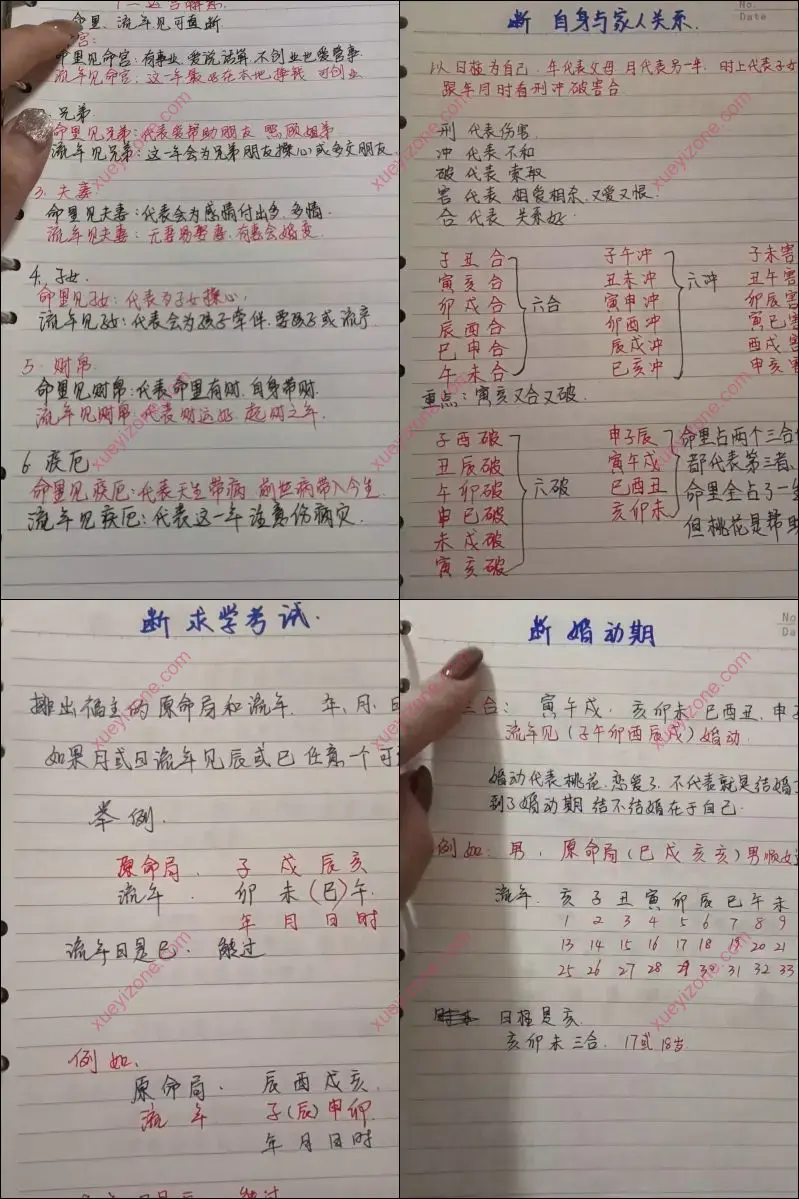 命里、流年见可直断
宫:
命里见命宫:有事业,爱说话算,不创业也爱管事
流年见命宫,这一年最好在本地挣钱 可创业
兄弟
命里见兄弟:代表爱帮助朋友 照顾姐弟
流年见兄弟:这一年会为兄弟朋友操心或多交朋友
3、夫妻
命里见夫妻:代表会为感情付出多、多情
流年见夫妻:无妻易娶妻,有妻会婚变
4、子女.
命里见子女:代表为子女操心,
流年见子女:代表会为孩子牵伴,要孩子或流产
5、财帛
命里见财帛:代表命里有财,自身带财.
流年见财帛:代表财运好 起财之年.
6 疾厄
命里见疾厄:代表天生带病 前世病带入今生
流年见疾厄:代表这一年注意伤病灾.
断 自身与家人关系.
No.
Date
以日柱为自己、年代表父母 月代表另一半、时上代表子女
跟年月时看刑冲破害合
刑 代表伤害.
冲 代表不和
破 代表 索取
害 代表 相爱相杀、又爱又恨.
合 代表 关系好.
子丑合
寅亥合
卯戌合
辰酉合
巳申合
午未合
六合
子午冲
丑未冲
寅申冲
卯酉冲
辰戌冲
巳亥冲
六冲
子未害
丑午害
卯辰害
寅巳害
酉戌害
申亥害
重点:寅亥又合又破.
子酉破
丑辰破
午卯破
申巳破
未戌破
寅亥破
六破
申子辰
寅午戌
巳酉丑
亥卯未
命里占两个三合
都代表第三者、
命里全占了一
但桃花是帮助
断 求学考试.
排出福主的原命局和流年. 年、月、日
如果月或日流年见辰或巳任意一个可
举例.
原命局. 子 戌 辰 亥
流年. 卯 未 (巳) 午.
年 月 日 时
流年日是巳. 能过
例如.
原命局. 辰 酉 戌 亥.
流年 子 (辰) 申 卯
年 月 日 时
能过
断 婚动期
No
Da
三合: 寅午戌. 亥卯未 巳酉丑、申子
流年见(子午卯酉辰戌)婚动.
婚动代表桃花、恋爱了,不代表就是结婚了
到了婚动期 结不结婚在于自己.
例如: 男, 原命局(巳戌亥亥)男顺女逆
流年. 亥 子 丑 寅 卯 辰 巳 午 未
1 2 3 4 5 6 7 8 9
13 14 15 16 17 18 19 20 21
25 26 27 28 29 30 31 32 33
日柱是亥.
亥卯未三合. 17或18岁.
xueyizone.com
xueyizone.com
xueyizone.com
xueyizone.com